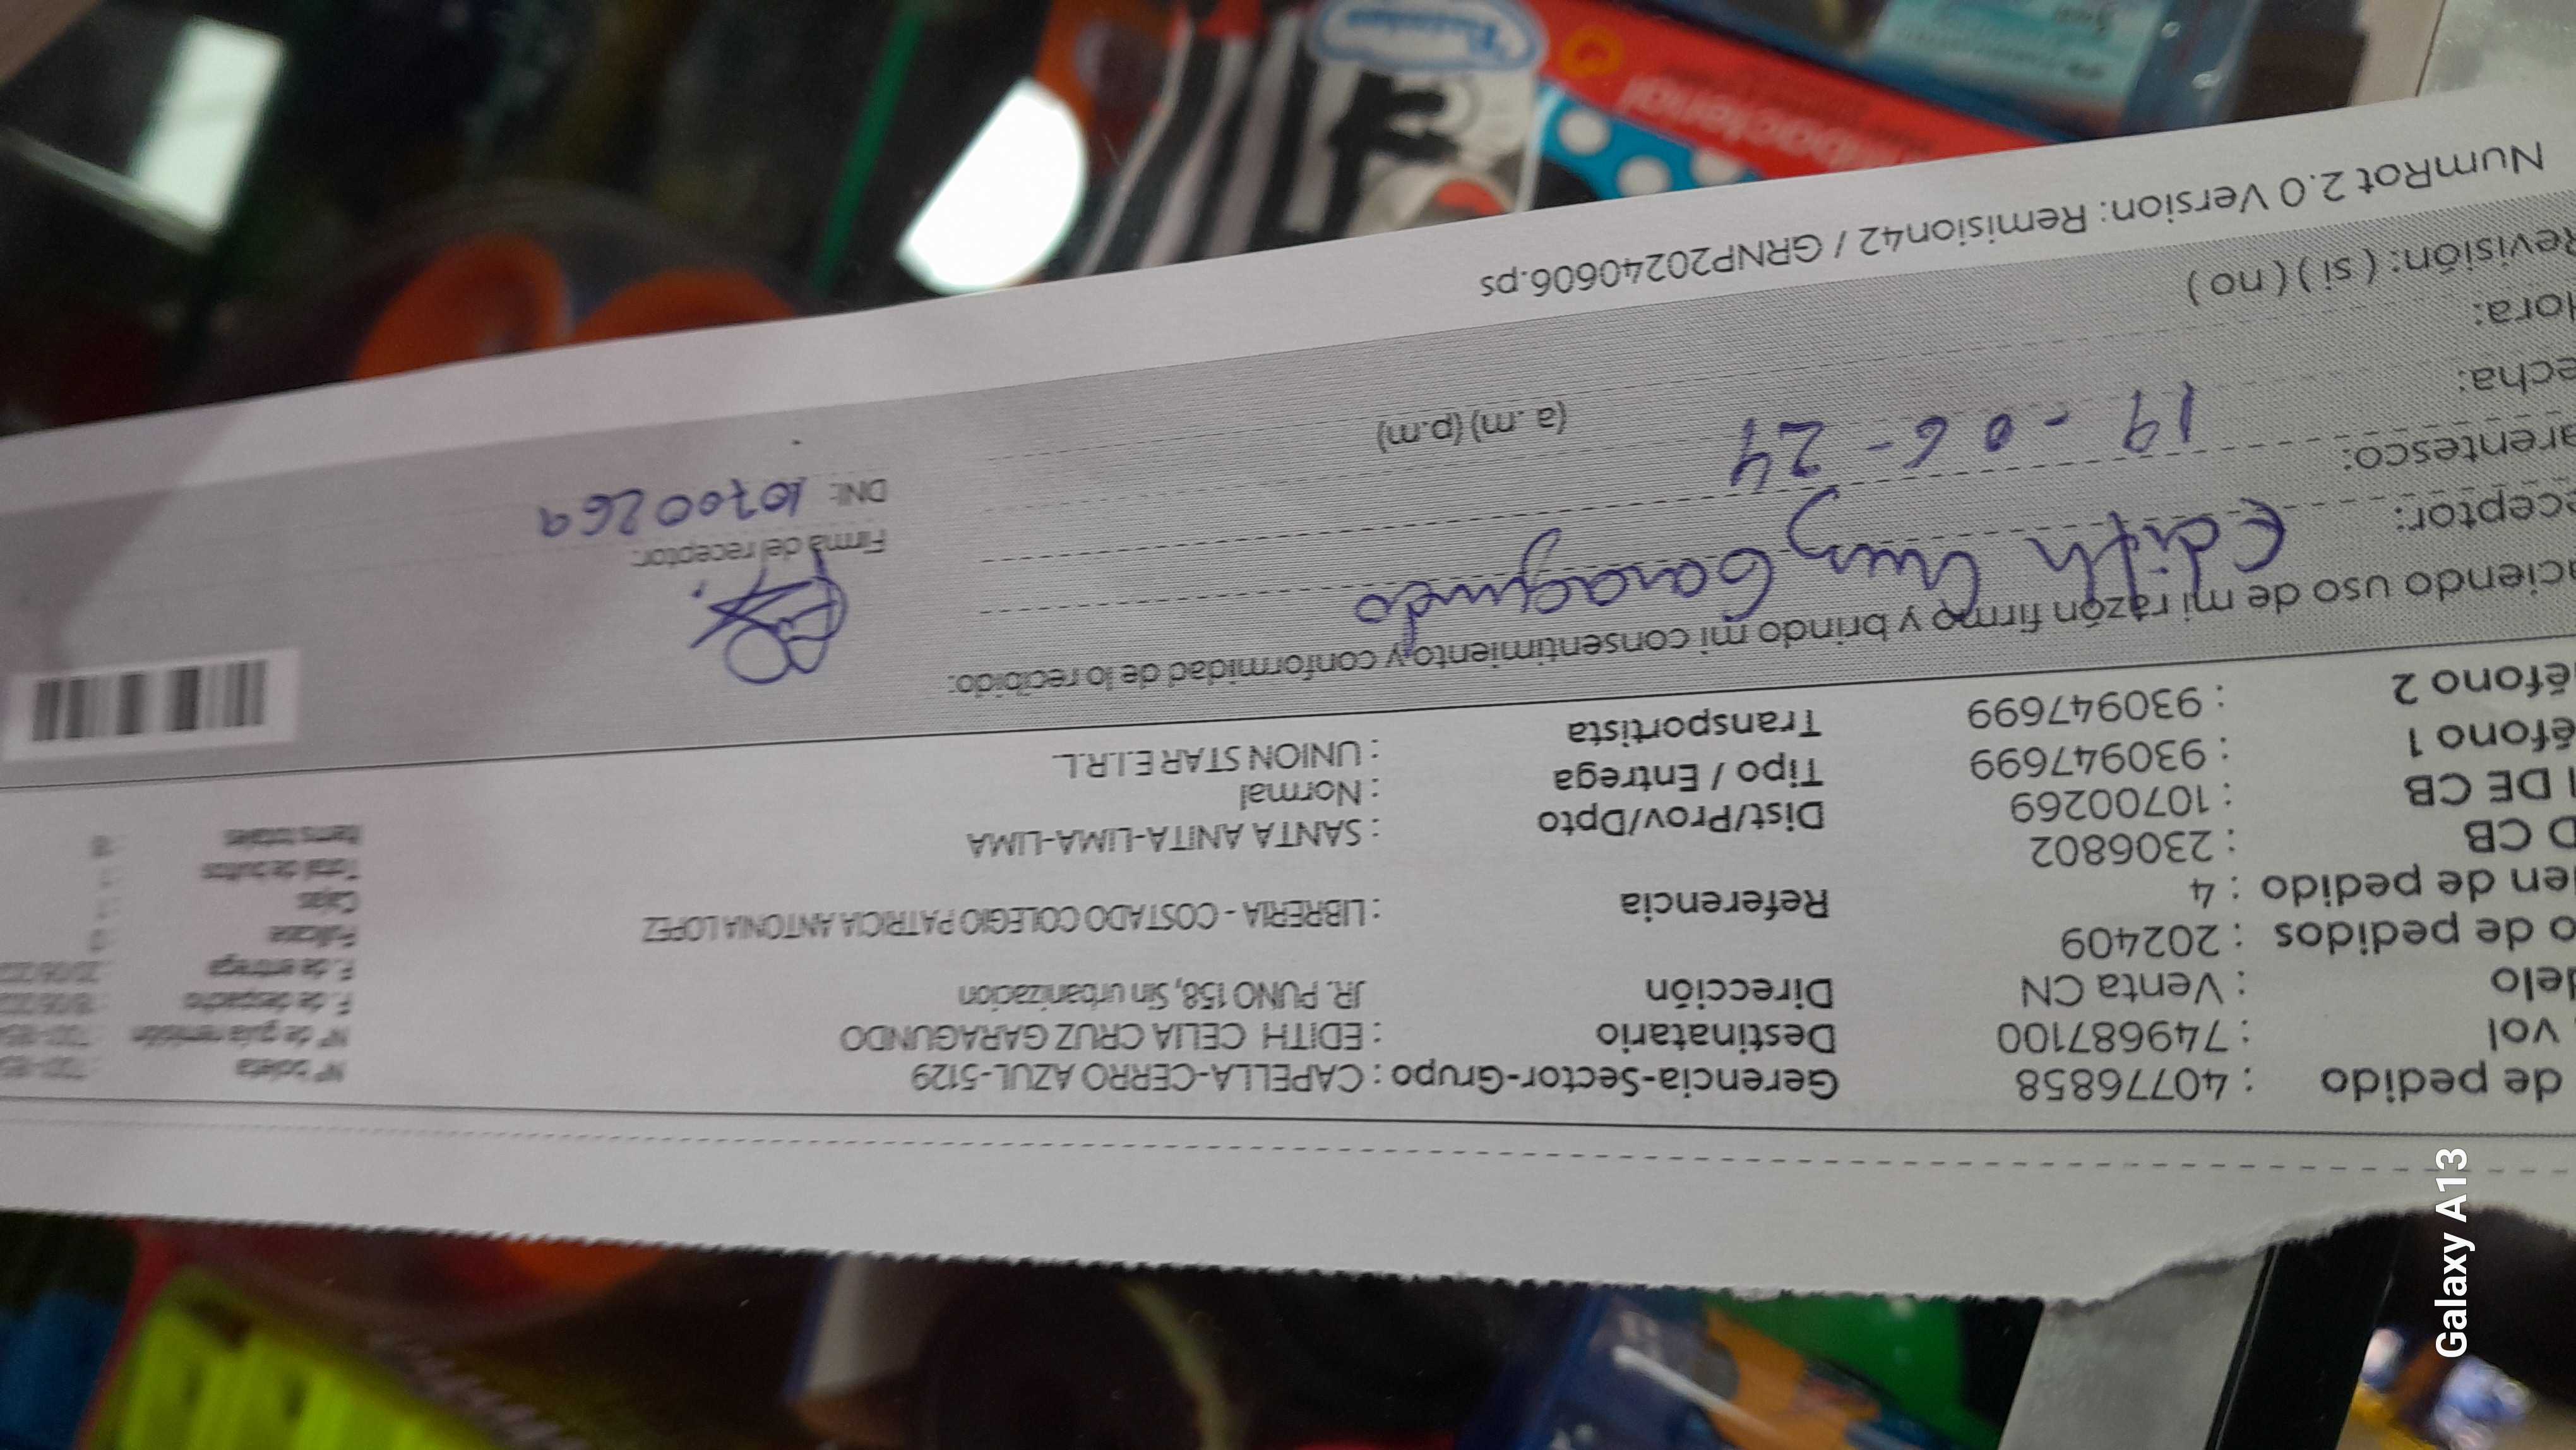 de pedido : 40776858 Gerencia-Sector-Grupo : CAPELLA-CERRO AZUL-5129 Nº boleta
vol : 749687100 Destinatario : EDITH CELIA CRUZ GARAGUNDO Nº de guía remisión
delo : Venta CN Dirección JR. PUNO 158, Sin urbanizacion F. de despacho
o de pedidos : 202409 F. de entrega
en de pedido : 4 Referencia : LIBRERIA - COSTADO COLEGIO PATRICIA ANTONIA LOPEZ Fullcase
D CB : 2306802 Cajas
I DE CB : 10700269 Dist/Prov/Dpto : SANTA ANITA-LIMA-LIMA Total de bultos
éfono 1 : 930947699 Tipo / Entrega : Normal Items totales
éfono 2 : 930947699 Transportista : UNION STAR E.I.R.L.
aciendo uso de mi razón firmo y brindo mi consentimiento y conformidad de lo recibido:
ceptor: Edith Cruz Garagundo
Firma del receptor:
arentesco:
DNI: 10700269
echa: 19-06-24
Hora: (a.m) (p.m)
Revisión: ( si ) ( no )
NumRot 2.0 Version: Remision42 / GRNP20240606.ps
Galaxy A13